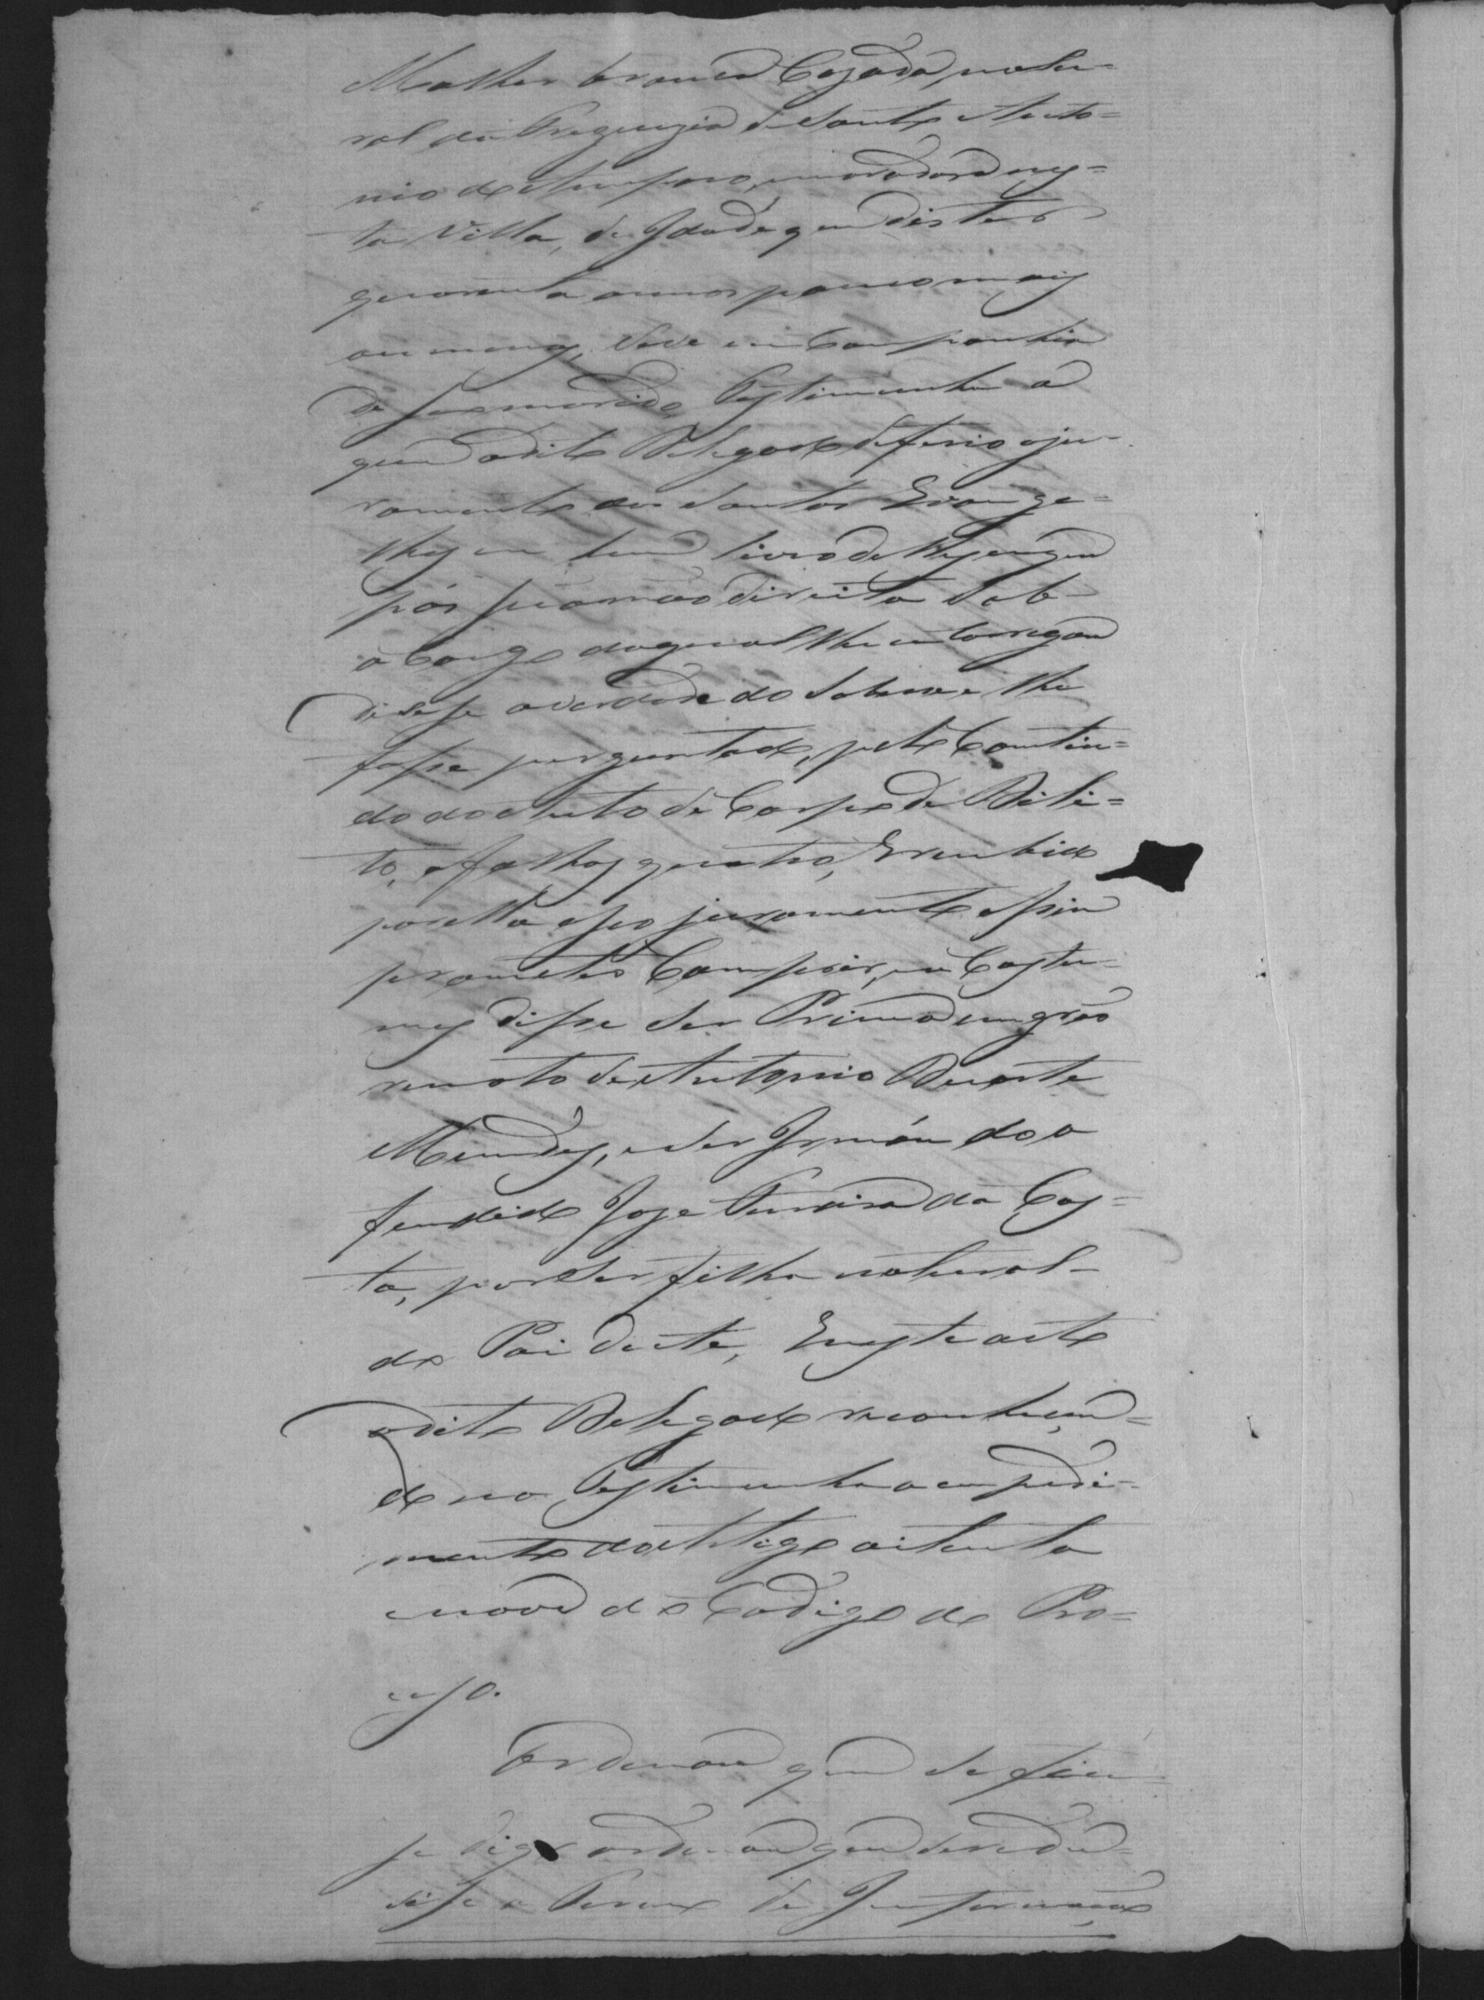 Molher branca Cazada, natu=
ral da Freguezia de Santo Anto=
nio do Amparo, moradora nes=
ta Villa, de Idade que dis ter
quarenta annos pouco mais
ou menos, vive em Companhia
de seo marido, Testimunha a
quem o dito Delegado deferio o ju-
ramento dos Santos Evange=
lhos em hum livro delles em que
pôs sua mão direita Sob
o Cargo do qual lhe encarregou
disesse a verdade do Soubesse e lhe
fosse perguntado, pelo Conteu=
do do Auto de Corpo de Deli=
to, a folhas quatro, E recebido
por ella o seo juramento assim
prometeo Comprir, e a Costu=
mes disse ser Prima em gráo
remoto de Antonio Duarte
Mendes, e ser Irmán do o
fendido Joze Ferreira da Cos=
ta, por ser filha natural
do Pai deste, E neste acto
o dito Delegado reconhecen=
do na Testimunha o empedi=
mento do Artigo oitenta
e nove do Codigo do Pro=
cesso.
Ordenou que se ficas
se digo ordenou que se redu
sisse a Termo de Informação